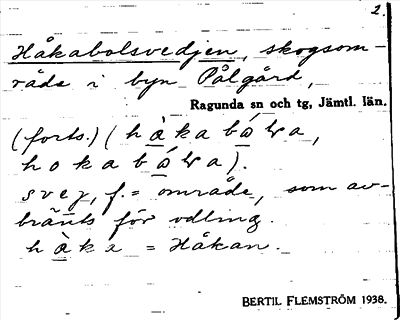 2.
Håkabolsvedjen, skogsom-
råde i byn Pålgård,
Ragunda sn och tg, Jämtl. län.
(forts.) (hàka
hoka
svej, f. = område, som av-
bränts för odling.
= Håkan.
BERTIL FLEMSTRÖM 1938.